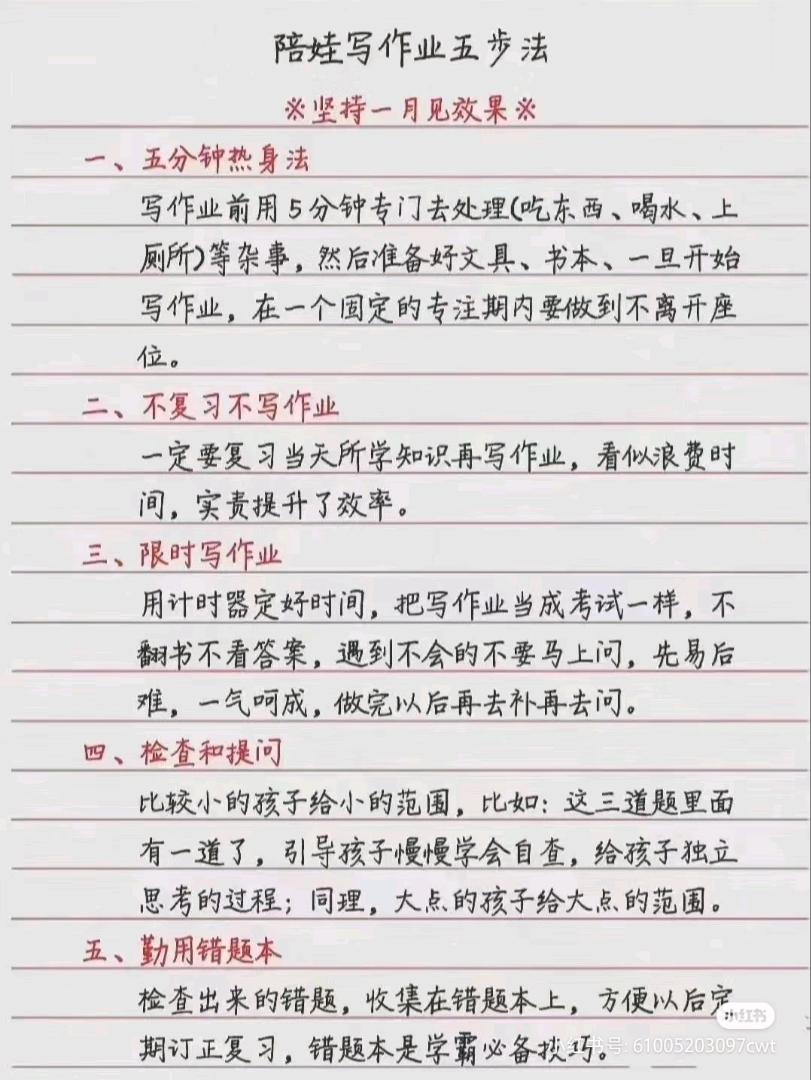 陪娃写作业五步法
※坚持一月见效果※
一、五分钟热身法
写作业前用5分钟专门去处理(吃东西、喝水、上
厕所)等杂事，然后准备好文具、书本、一旦开始
写作业，在一个固定的专注期内要做到不离开座
位。
二、不复习不写作业
一定要复习当天所学知识再写作业，看似浪费时
间，实责提升了效率。
三、限时写作业
用计时器定好时间，把写作业当成考试一样，不
翻书不看答案，遇到不会的不要马上问，先易后
难，一气呵成，做完以后再去补再去问。
四、检查和提问
比较小的孩子给小的范围，比如：这三道题里面
有一道了，引导孩子慢慢学会自查，给孩子独立
思考的过程；同理，大点的孩子给大点的范围。
五、勤用错题本
检查出来的错题，收集在错题本上，方便以后定
小红书
期订正复习，错题本是学霸必备技巧。
小红书号: 61005203097cwt